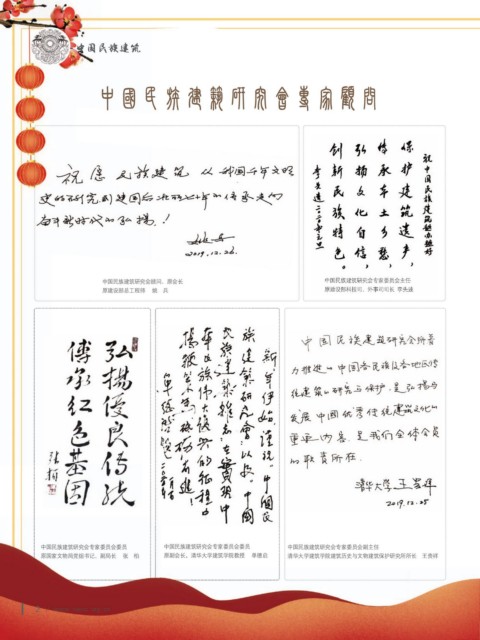 中国民族建筑
中國民族建築研究會專家顧問
祝愿民族建筑从我国千年文明
史的研究到建国后
七十年的传承走向
奋斗新时代的弘扬!
2019.12.26.
中国民族建筑研究会顾问、原会长
原建设部总工程师 姚兵
祝中国民族建筑越办越好
保护建筑遗产,
传承本土乡愁,
弘扬文化自信,
创新民族特色。
李先逵二〇二〇年元旦
中国民族建筑研究会专家委员会主任
原建设部科技司、外事司司长 李先逵
弘揚優良传统
傳承红色基因
张柏
中国民族建筑研究会专家委员会委员
原国家文物局党组书记、副局长 张柏
新年伊始,谨祝“中国民
族建築研究會”以及“中国
民族建築”雜志在實現中
华民族伟大復興的征程中
前進!
中国民族建筑研究会专家委员会委员
原副会长,清华大学建筑学院教授 单德启
中国民族建筑研究会所着
力推进的中国各民族及各地区传
统建筑的研究与保护,是弘扬与
发展中国优秀传统建筑文化的
重要内容,是我们全体会员
的职责所在.
清华大学 王贵祥
2019.12.25
中国民族建筑研究会专家委员会副主任
清华大学建筑学院建筑历史与文物建筑保护研究所所长 王贵祥